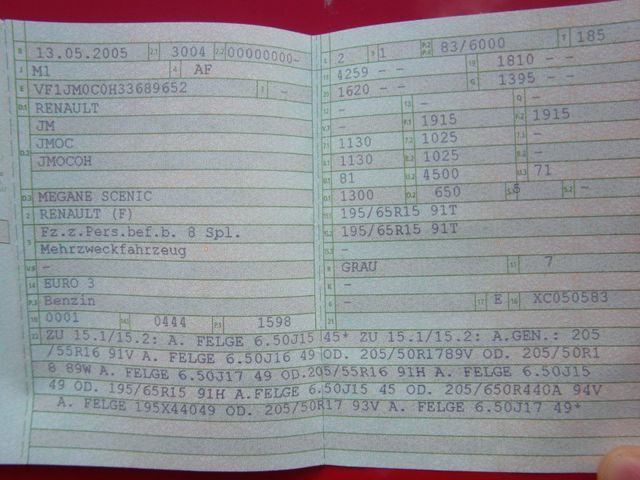 B 13.05.2005 2.1 3004 2.2 00000000-
J M1 4 AF
E VF1JM0C0H33689652 3 -
D.1 RENAULT
JM
D.2 JMOC
JMOCOH
D.3 MEGANE SCENIC
2 RENAULT (F)
5 Fz.z.Pers.bef.b. 8 Spl.
Mehrzweckfahrzeug
V.9 -
14 EURO 3
P.3 Benzin
10 0001 14.1 0444 P.1 1598
L 2 9 1 P.2 P.4 83/6000 T 185
18 4259 - - 19 1810 - -
20 1620 - - G 1395 - -
12 - 13 - Q -
V.7 - F.1 1915 F.2 1915
7.1 1130 7.2 1025 7.3 -
8.1 1130 8.2 1025 8.3 -
U.1 81 U.2 4500 U.3 71
O.1 1300 O.2 650 S.1 5 S.2 -
15.1 195/65R15 91T
15.2 195/65R15 91T
15.3 -
R GRAU 11 7
K -
6 - 17 E 16 XC050583
21
22 ZU 15.1/15.2: A. FELGE 6.50J15 45* ZU 15.1/15.2: A.GEN.: 205
/55R16 91V A. FELGE 6.50J16 49 OD. 205/50R1789V OD. 205/50R1
8 89W A. FELGE 6.50J17 49 OD.205/55R16 91H A. FELGE 6.50J15
49 OD. 195/65R15 91H A.FELGE 6.50J15 45 OD. 205/650R440A 94V
A. FELGE 195X44049 OD. 205/50R17 93V A. FELGE 6.50J17 49*